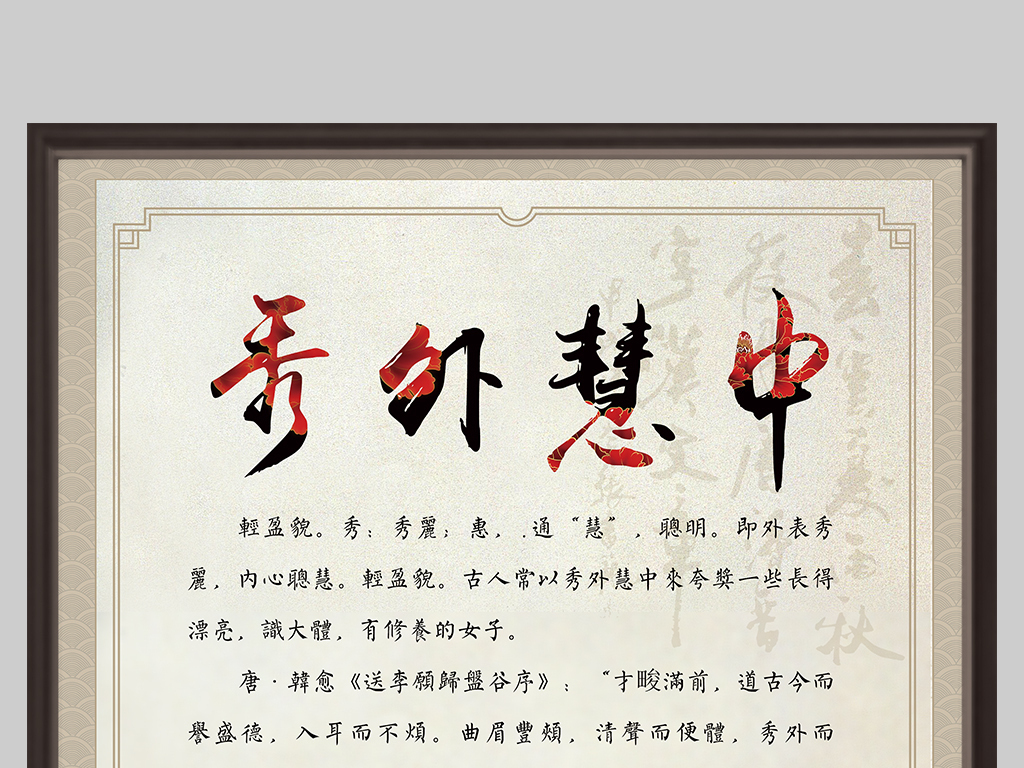 秀外慧中
輕盈貌。秀：秀麗；惠，.通“慧”，聰明。即外表秀
麗，内心聰慧。輕盈貌。古人常以秀外慧中來夸獎一些長得
漂亮，識大體，有修養的女子。
唐·韓愈《送李願歸盤谷序》：“才畯滿前，道古今而
譽盛德，入耳而不煩。曲眉豐頰，清聲而便體，秀外而